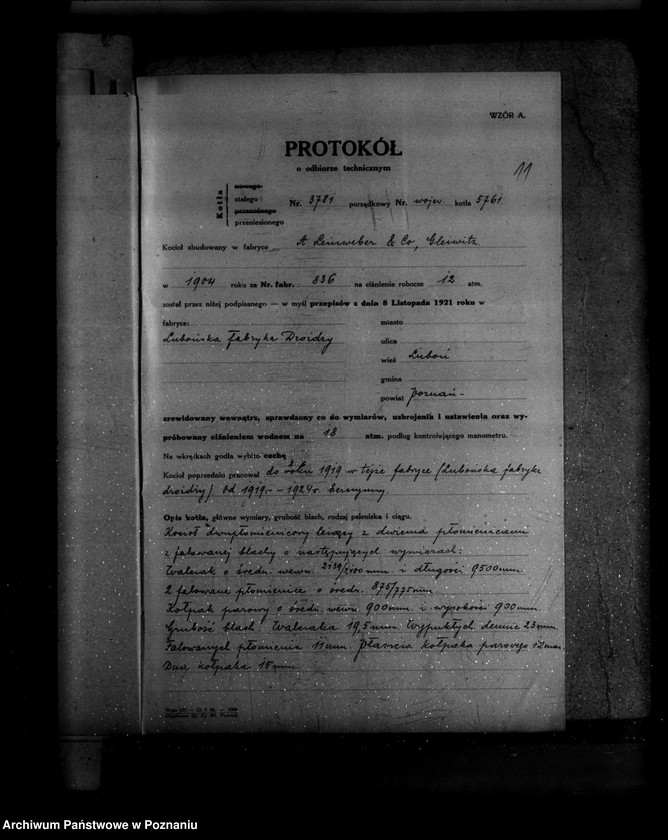 WZÓR A.
PROTOKÓŁ
o odbiorze technicznym
11
Kotła
nowego
stałego
przenośnego
przeniesionego
Nr. 3781 porządkowy Nr. wojew. kotła 5761
Kocioł zbudowany w fabryce A Leinweber & Co, Gleiwitz.
w 1904 roku za Nr. fabr. 836 na ciśnienie robocze 12 atm.
został przez niżej podpisanego — w myśl przepisów z dnia 8 Listopada 1921 roku w
fabryce:
Lubońska Fabryka Drożdży
miasto
ulica
wieś Luboń
gmina
powiat Poznań-
zrewidowany wewnątrz, sprawdzony co do wymiarów, uzbrojenia i ustawienia oraz wy-
próbowany ciśnieniem wodnem na 18 atm. podług kontrolującego manometru.
Na wkrętkach godła wybito cechę
Kocioł poprzednio pracował do roku 1919 w tejże fabryce (Lubońska fabryka
drożdży). Od 1919 - 1924r.
Opis kotła, główne wymiary, grubość blach, rodzaj paleniska i ciągu.
Kocioł dwupłomienicowy leżący z dwiema płomienicami
z falowanej blachy o następujących wymiarach:
Walczak o średn. wewn. 2100 mm. i długości 9500 mm.
2 falowane płomienice o średn. 875/775 mm
Kołpak parowy o średn. wewn. 900 mm. i wysokości 900 mm.
Grubość blach: Walczaka 19,5 mm. Wypukłych dennic 23 mm.
Falowanych płomienic 11 mm. Płaszcza kołpaka parowego 12 mm.
Dna kołpaka 15 mm.
Archiwum Państwowe w Poznaniu